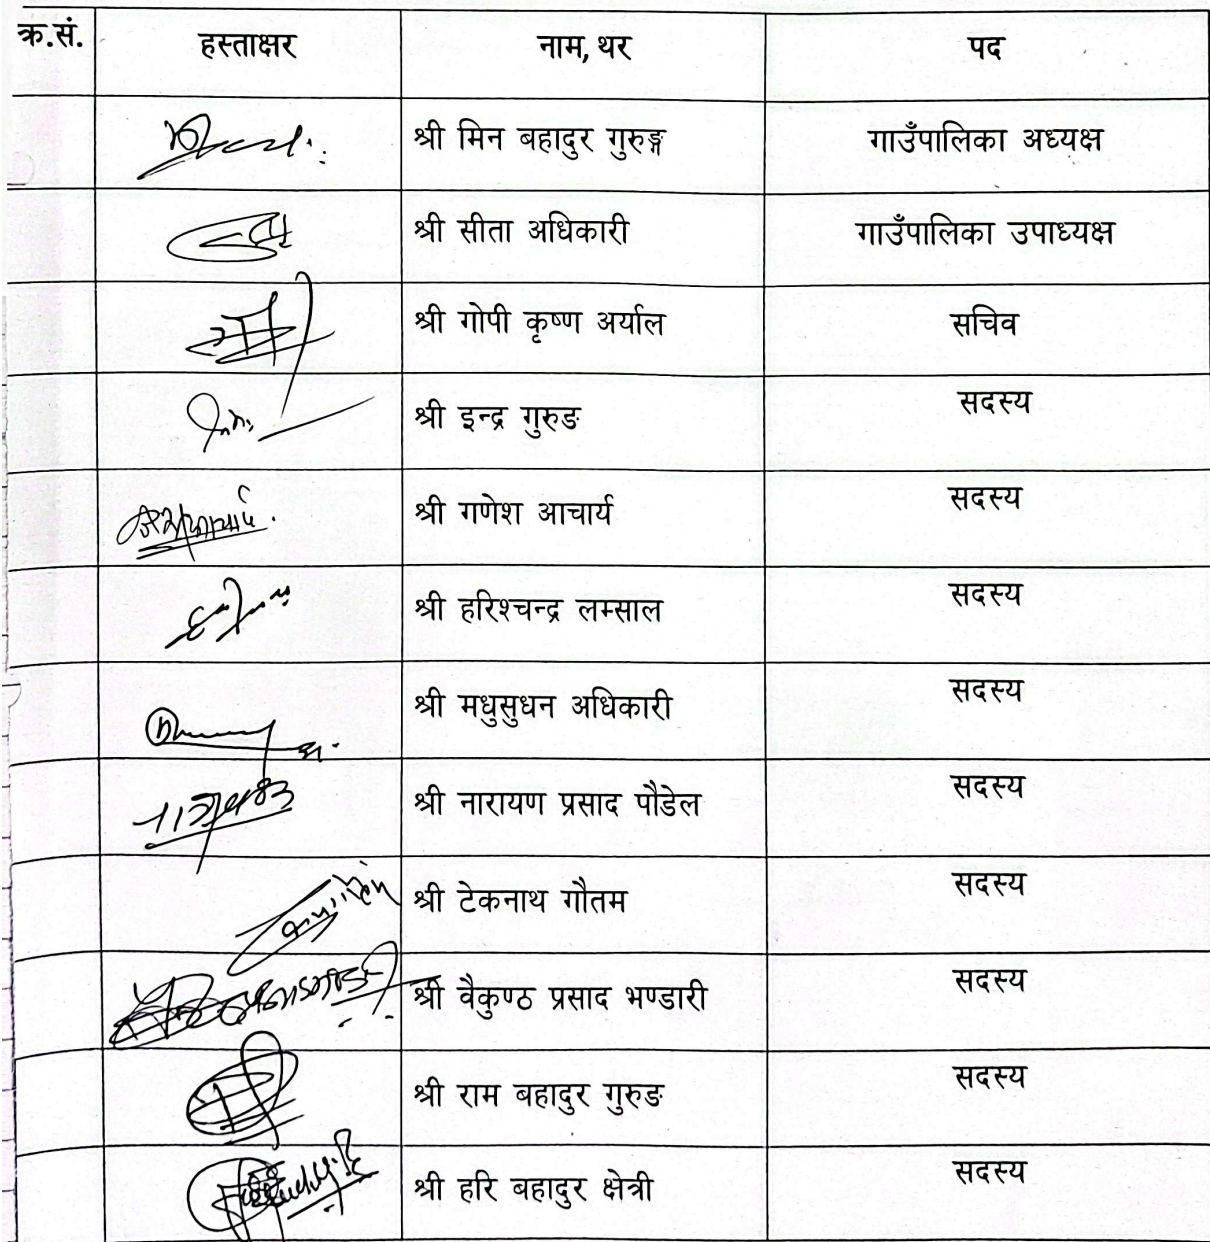 क्र.सं. हस्ताक्षर नाम, थर पद
श्री मिन बहादुर गुरुङ्ग गाउँपालिका अध्यक्ष
श्री सीता अधिकारी गाउँपालिका उपाध्यक्ष
श्री गोपी कृष्ण अर्याल सचिव
श्री इन्द्र गुरुङ सदस्य
श्री गणेश आचार्य सदस्य
श्री हरिश्चन्द्र लम्साल सदस्य
श्री मधुसुधन अधिकारी सदस्य
श्री नारायण प्रसाद पौडेल सदस्य
श्री टेकनाथ गौतम सदस्य
श्री वैकुण्ठ प्रसाद भण्डारी सदस्य
श्री राम बहादुर गुरुङ सदस्य
श्री हरि बहादुर क्षेत्री सदस्य